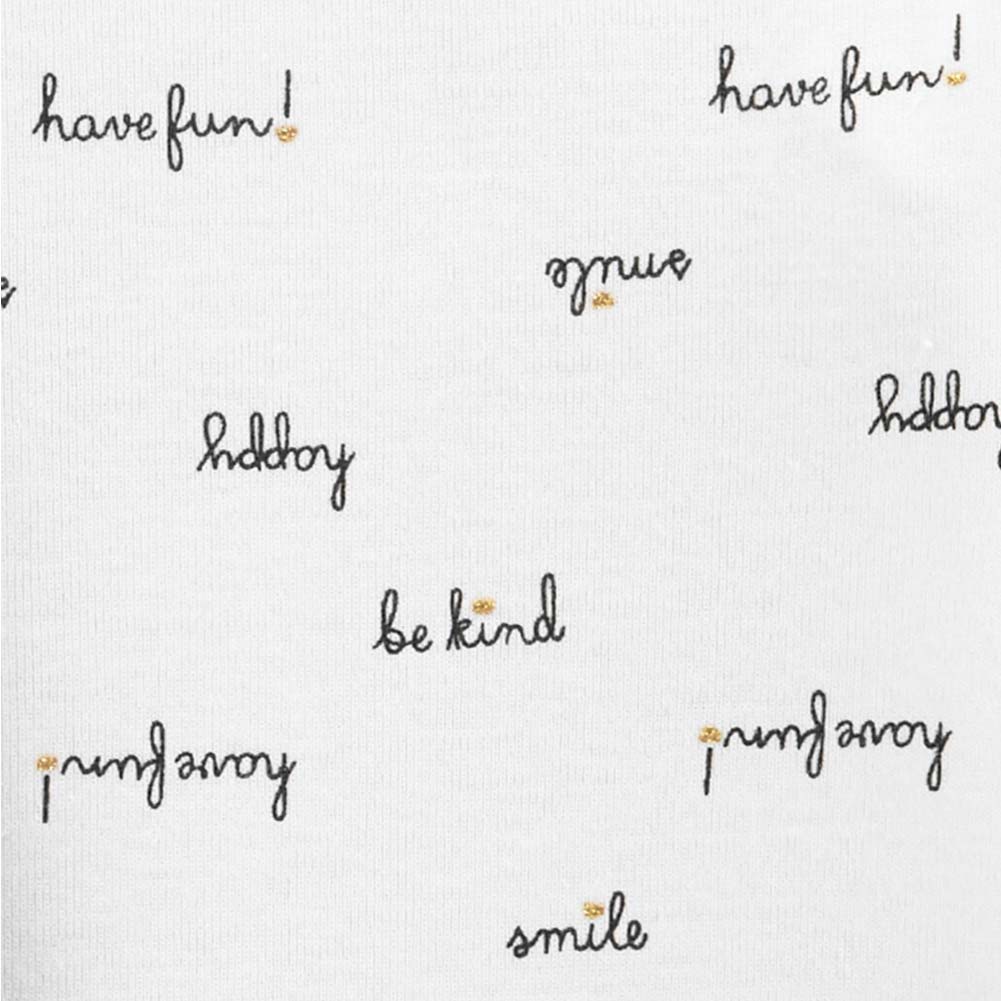 have fun!
have fun!
smile
happy
happy
be kind
have fun!
have fun!
smile